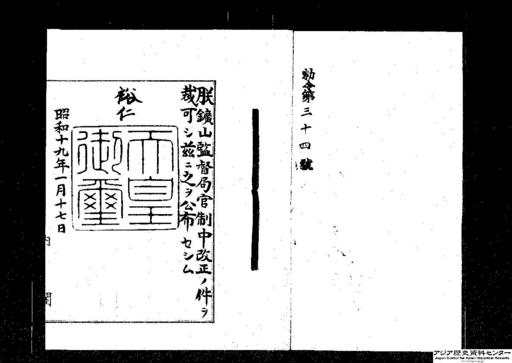 勅令第三十四號
朕鑛山監督局官制中改正ノ件ヲ
裁可シ玆ニ之ヲ公布セシム
裕仁
天皇
御璽
昭和十九年一月十七日
内閣
アジア歴史資料センター
Japan Center for Asian Historical Records